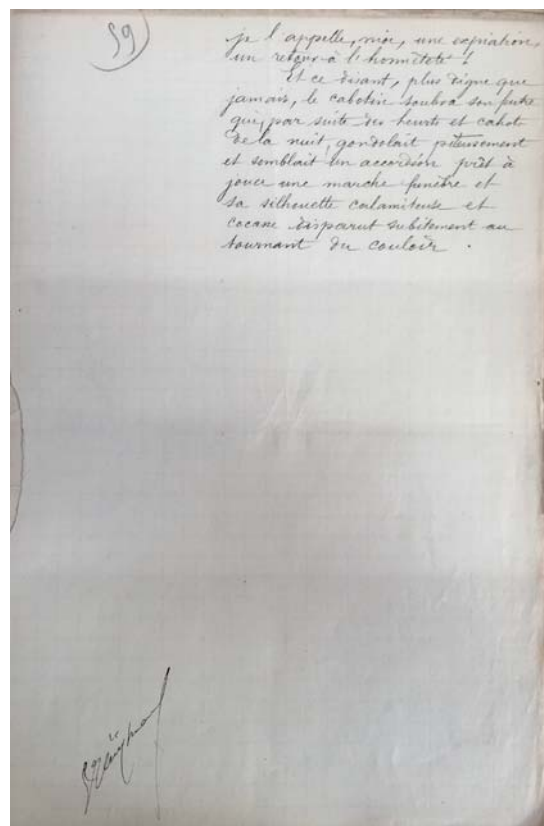 59
je l'appelle, moi, une expiation,
un retour à l'honnêteté !
Et ce disant, plus digne que
jamais, le cabotin souleva son
qui, par suite des heurts et cahots
de la nuit, gondolait piteusement
et semblait un accordéon prêt à
jouer une marche funèbre et
sa silhouette calamiteuse et
cocasse disparut subitement au
tournant du couloir.